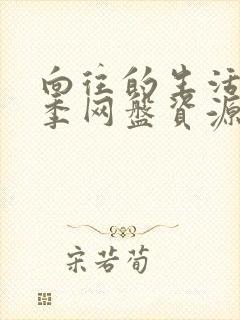 向往的生活
季网盘资源
宋若荀